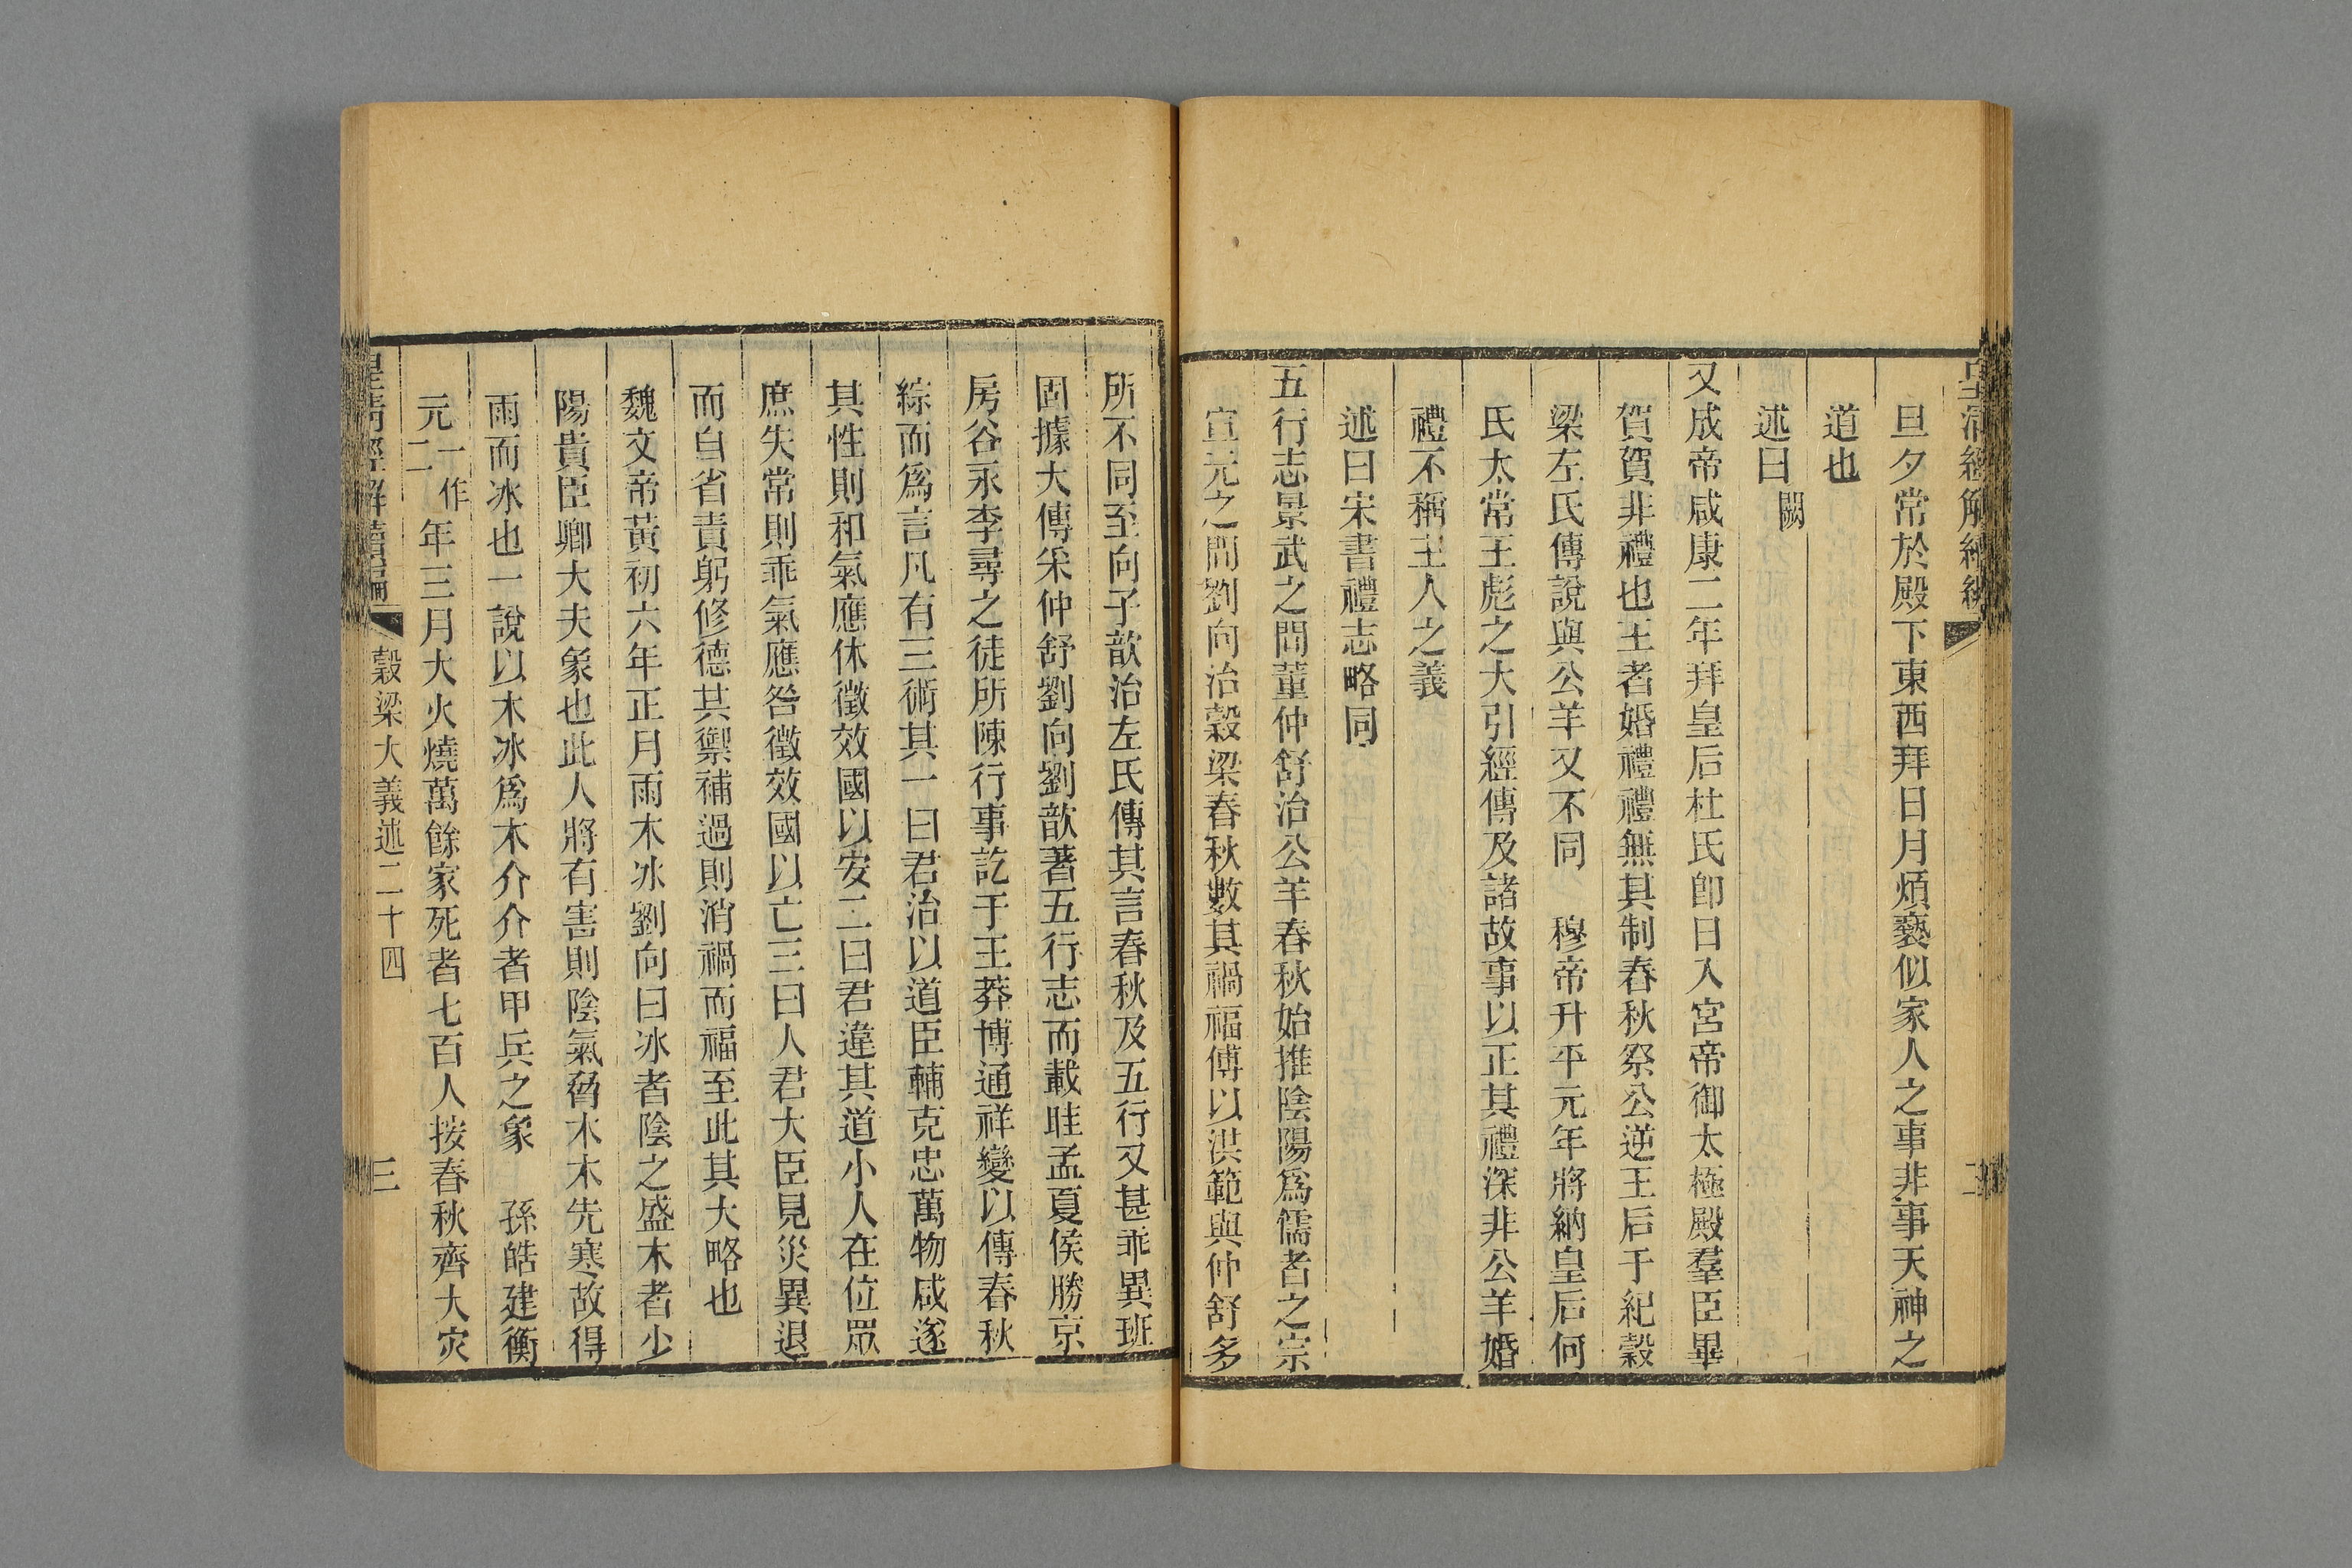 旦夕常於殿下東西拜日月煩褻似家人之事非事天神之
道也
述曰闕
又成帝咸康二年拜皇后杜氏卽日入宮帝御太極殿羣臣畢
賀賀非禮也王者婚禮禮無其制春秋祭公逆王后于紀穀
梁左氏傳說與公羊又不同　穆帝升平元年將納皇后何
氏太常王彪之大引經傳及諸故事以正其禮深非公羊婚
禮不稱主人之義
述曰宋書禮志略同
五行志景武之間董仲舒治公羊春秋始推陰陽爲儒者之宗
宣元之間劉向治穀梁春秋數其禍福傅以洪範與仲舒多
所不同至向子歆治左氏傳其言春秋及五行又甚乖異班
固據大傳采仲舒劉向劉歆著五行志而載眭孟夏侯勝京
房谷永李尋之徒所陳行事訖于王莽博通祥變以傳春秋
綜而爲言凡有三術其一曰君治以道臣輔克忠萬物咸遂
其性則和氣應休徵效國以安二曰君違其道小人在位眾
庶失常則乖氣應咎徵效國以亡三曰人君大臣見災異退
而自省責躬修德其禦補過則消禍而福至此其大略也
魏文帝黃初六年正月雨木冰劉向曰冰者陰之盛木者少
陽貴臣卿大夫象也此人將有害則陰氣脅木木先寒故得
雨而冰也一說以木冰爲木介介者甲兵之象　孫皓建衡
元一作二年三月大火燒萬餘家死者七百人按春秋齊大灾
皇淸經解續編　穀梁大義述二十四　三